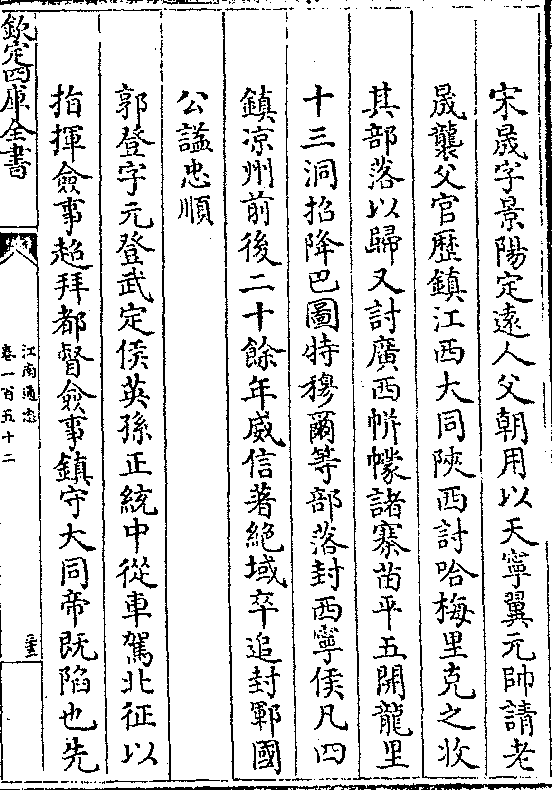 宋晟字景陽定遠人父朝用以天寧翼元帥請老
晟襲父官歷鎮江西大同陝西討哈梅里克之收
其部落以歸又討廣西帡幪諸寨苗平五開龍里
十三洞招降巴圖特穆爾等部落封西寧侯凡四
鎮凉州前後二十餘年威信著絶域卒追封鄆國
公諡忠順
郭登字元登武定侯英孫正統中從車駕北征以
指揮僉事超拜都督僉事鎮守大同帝既陷也先
欽定四庫全書
江南通志
卷一百五十二